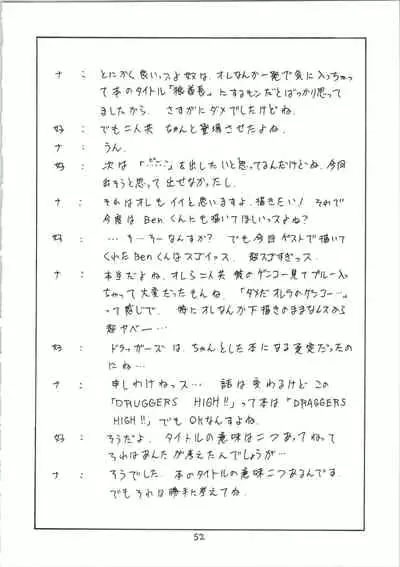 ナ： とにかく良いっスよ奴は、オレなんか一発で気に入っちゃっ
て本のタイトル「独首長」にするモンだとばっかり思って
ましたから。さすがにダメでしたけどね。
好： でも二人共 ちゃんと登場させたよね。
ナ： うん。
好： 次は「 」を出したいと思ってるんだけどね、今回
出そうと思って出せなかったし。
ナ： それはオレもイイと思いますよ、描きたい! それで
今度は Benくんにも描いてほしいっスよね?
好： … そーそーなんすか? でも今回ゲストで描いて
くれたBenくんはスゴイッス。 超スゴすぎっス。
ナ： 本当だよね、オレら二人共 彼のゲンコー見てブルー入っ
ちゃって大変だったもんね。「ダメだオレラのゲンコー…」
って感じで。 特にオレなんか下描きのまままなしスから
超ヤベー…
好： ドラッガーズは、ちゃんとした本になる予定だったの
にね…
ナ： 申しわけねっス… 話は変わるけど この
「DRUGGERS HIGH!!」って本は「DRAGGERS
HIGH!!」でも OKなんすよね。
好： そうだよ、タイトルの意味は二つあってねって
それはあんたが考えたんでしょうが…
ナ： そうでした。本のタイトルの意味二つあるんです。
でもそれは勝手に考えてね。
52